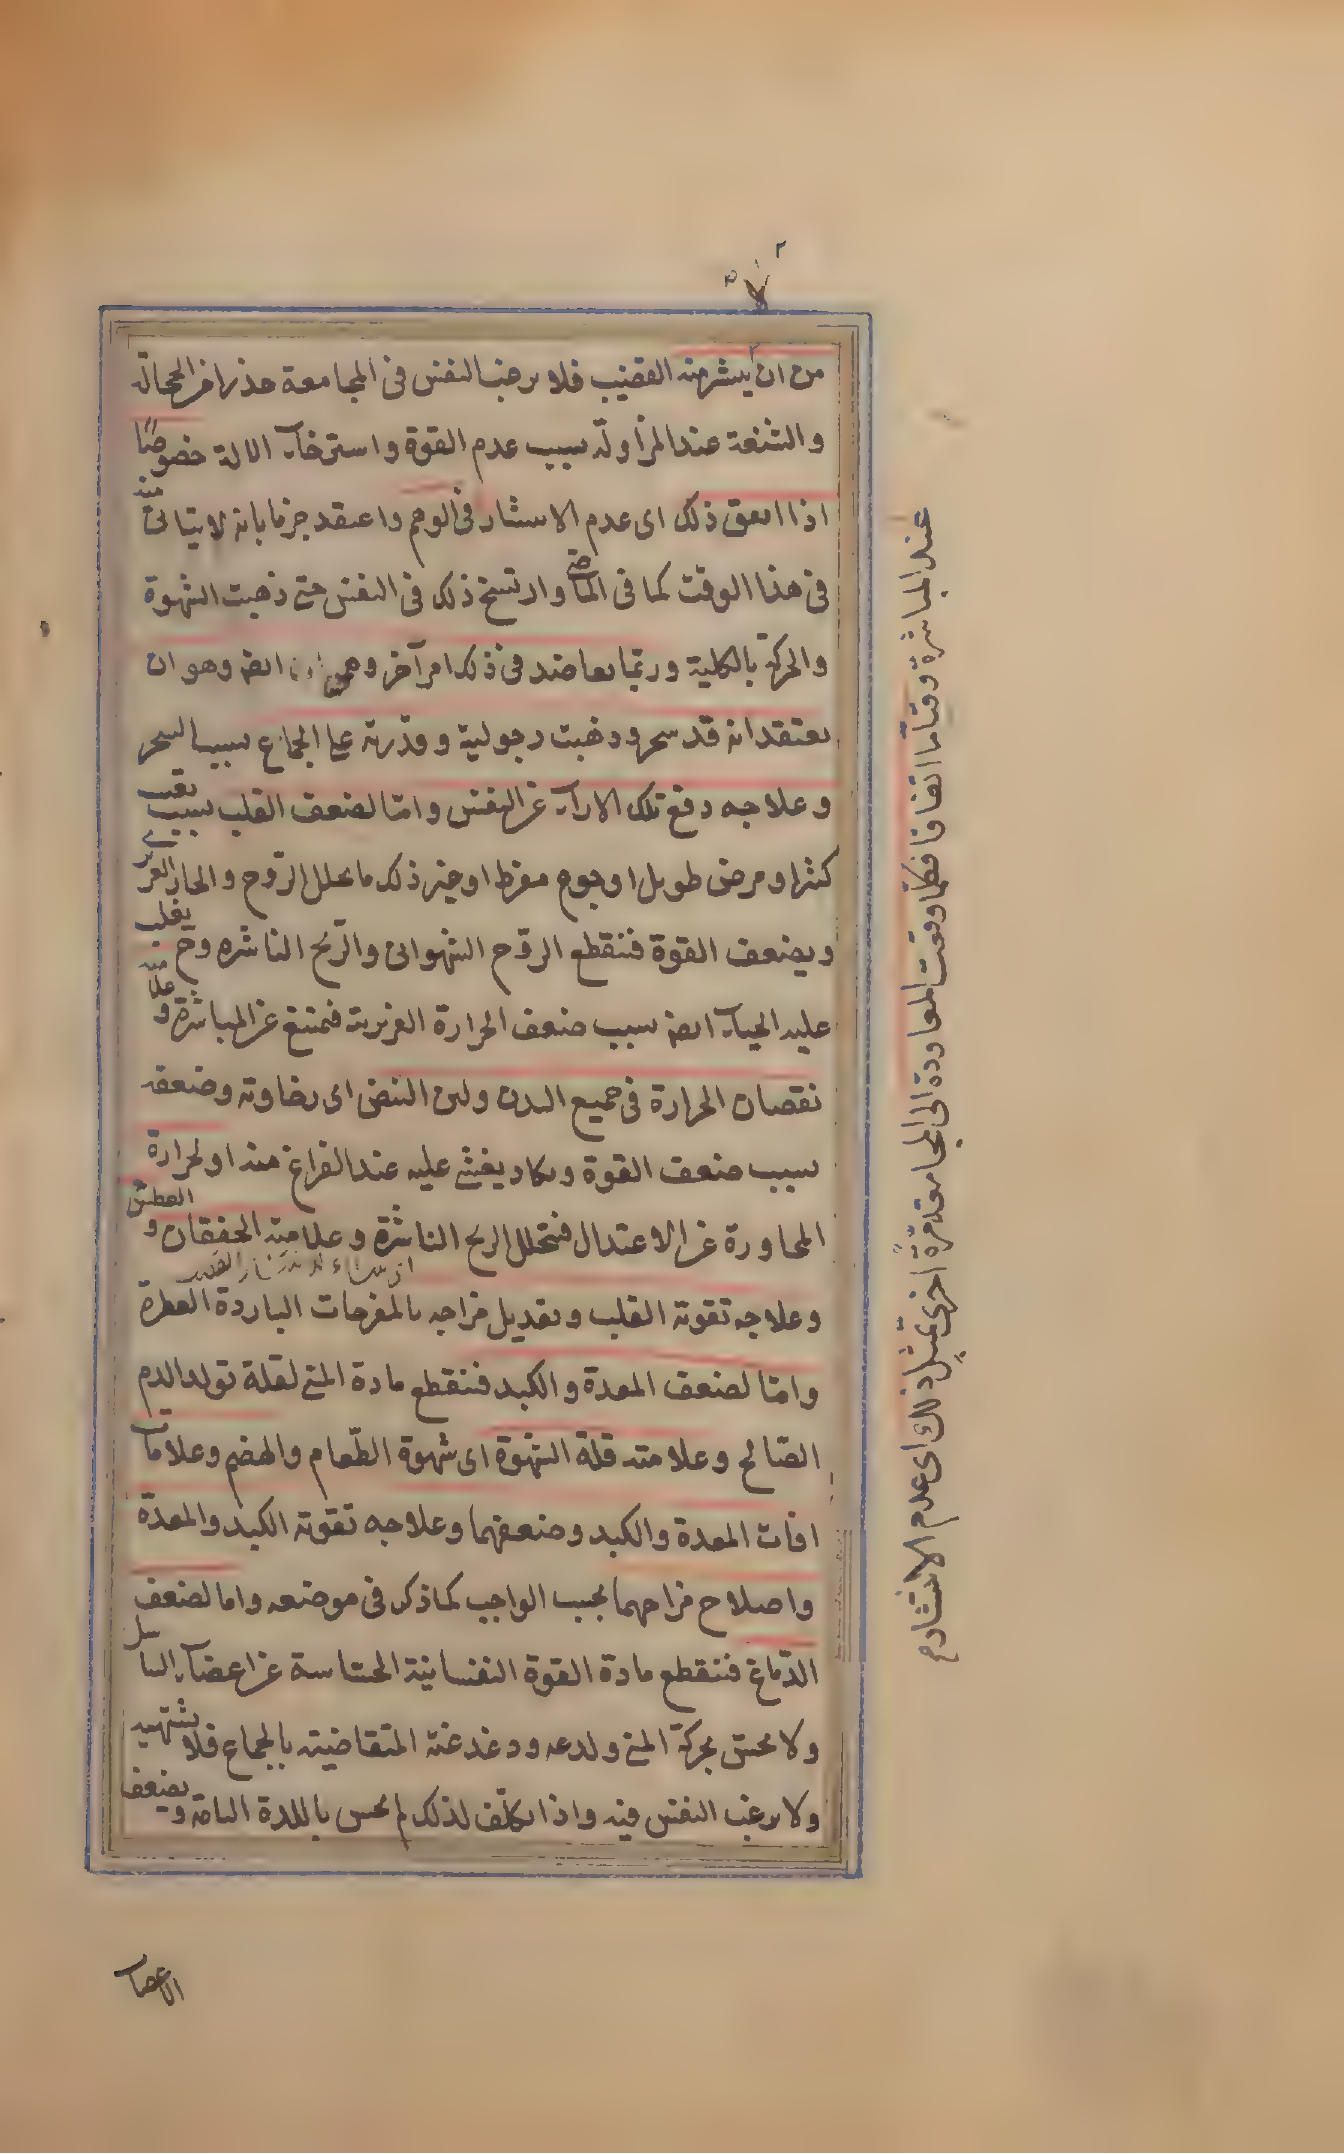 من ان لا ينشر منه القضيب فلا يرغب النفس فى المجامعة حذرا من الخجالة
والشنعة عند المرأة وله بسبب عدم القوة واسترخاء الالة خصوصًا
اذا اتفق ذلك اى عدم الانتشار فى الوهم واعتقد جزما بانه لا يتاتى منه
فى هذا الوقت كما فى الماضى وارتسخ ذلك فى النفس حتى ذهبت الشهوة
والحركة بالكلية وربّما يعاضد فى ذلك امر آخر وهمى ايضا وهو ان
يعتقد انه قد سحر وذهبت رجوليته وقدرته على الجماع بسبب السحر
وعلاجه دفع تلك الاراء عن النفس وامّا لضعف القلب بسبب تعب
كثير او مرض طويل او جوع مفرط او غير ذلك ما يحلل الرّوح والحار الغريزى
ويضعف القوة فتنقطع الروّح الشهوانى والرّيح الناشره وح يغلب
عليه الحياء ايضا بسبب ضعف الحرارة الغريزية فيمتنع عن المباشرة وعلامته
نقصان الحرارة فى جميع البدن ولين النبض اى رخاوته وضعفه
بسبب ضعف القوة ويكاد يغشى عليه عند الفراغ منه او لحرارة
المجاورة عن الاعتدال فتحلل الريح الناشرة وعلامته الخفقان والعطش
وعلاجه تقوية القلب وتعديل مزاجه بالمفرحات الباردة العطرة
وامّا لضعف المعدة والكبد فتنقطع مادة المنى لقلة تولد الدم
الصّالح وعلامته قلة الشهوة اى شهوة الطّعام والهضم وعلامات
افات المعدة والكبد وضعفهما وعلاجه تقوية الكبد والمعدة
واصلاح مزاجهما بحسب الواجب كما ذكر فى موضعه واما لضعف
الدّماغ فتنقطع مادة القوة النفسانية الحسّاسة عن اعضاء التناسل
ولا يحسّ بحركة المنى ولدعه ودغدغته المتقاضيته بالجماع فلا يشتهيه
ولا يرغب النفس فيه واذا تكلّف لذلك لم يحس باللذة التامة ويضعف
الاعضاء
عند المباشرة وقتا مّا اتفاقا فكلّما وقعت المعاودة الى المجامعة مرّةً اخرى تمثّل ذلك اى عدم الانتشار م